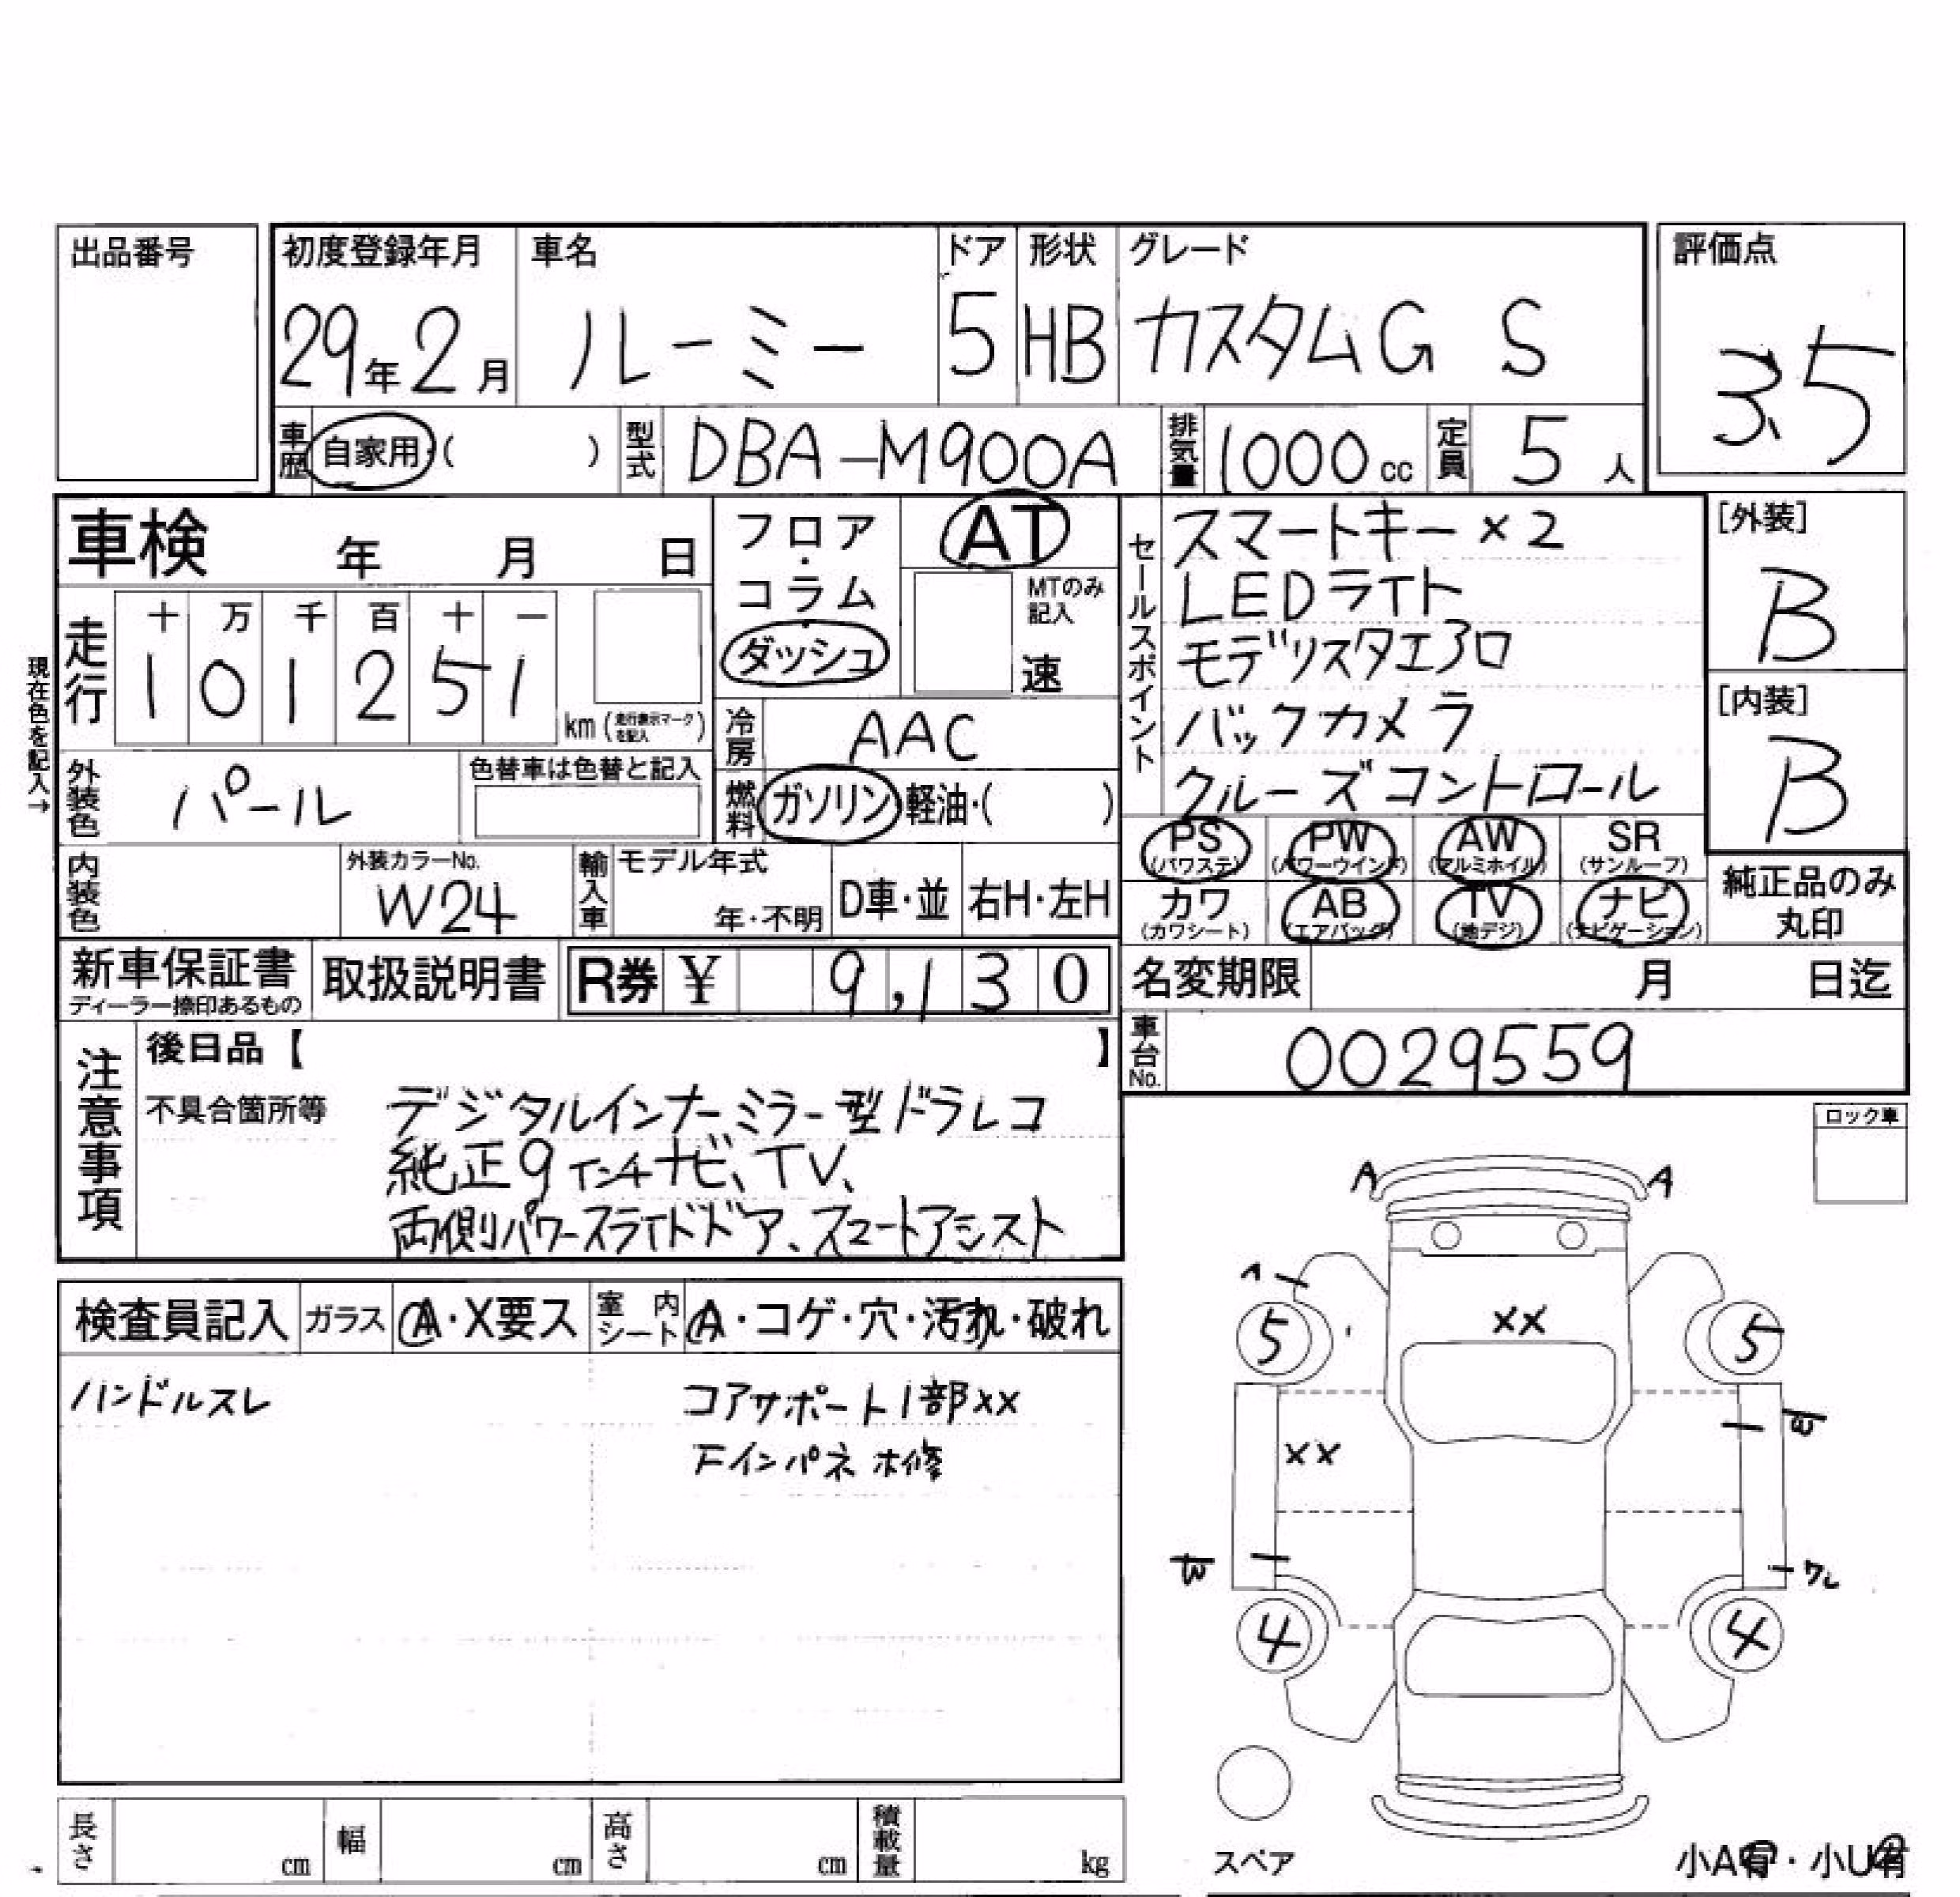 出品番号
初度登録年月 車名 ドア 形状 グレード 評価点
29年2月 ルーミー 5 HB カスタムG S 3.5
車歴 自家用・( ) 型式 DBA-M900A 排気量 1000cc 定員 5人
車検 年 月 日
フロア・コラム
ダッシュ
AT
MTのみ記入
速
セールスポイント
スマートキー×2
LEDライト
モデリスタエアロ
バックカメラ
クルーズコントロール
[外装]
B
[内装]
B
現在色を記入→
走行 十 万 千 百 十 一
1 0 1 2 5 1 km (走行表示マークを記入)
冷房 AAC
外装色 パール 色替車は色替と記入
燃料 ガソリン・軽油・( )
PS (パワステ) PW (パワーウインド) AW (アルミホイル) SR (サンルーフ)
カワ (カワシート) AB (エアバッグ) TV (地デジ) ナビ (ナビゲーション)
純正品のみ丸印
内装色 外装カラーNo. W24 輸入車 モデル年式 年・不明 D車・並 右H・左H
新車保証書 ディーラー捺印あるもの 取扱説明書 R券 ¥ 9,130
名変期限 月 日迄
車台No. 0029559
注意事項
後日品【 】
不具合箇所等 デジタルインナーミラー型ドラレコ
純正9インチナビ、TV、
両側パワースライドドア、スマートアシスト
ロック車
検査員記入 ガラス A・X要ス 室内シート A・コゲ・穴・汚れ・破れ
ハンドルスレ コアサポート1部××
Fインパネ 補修
A A
××
5 5
××
4 4
スペア
小A有・小U有
長さ cm 幅 cm 高さ cm 積載量 kg